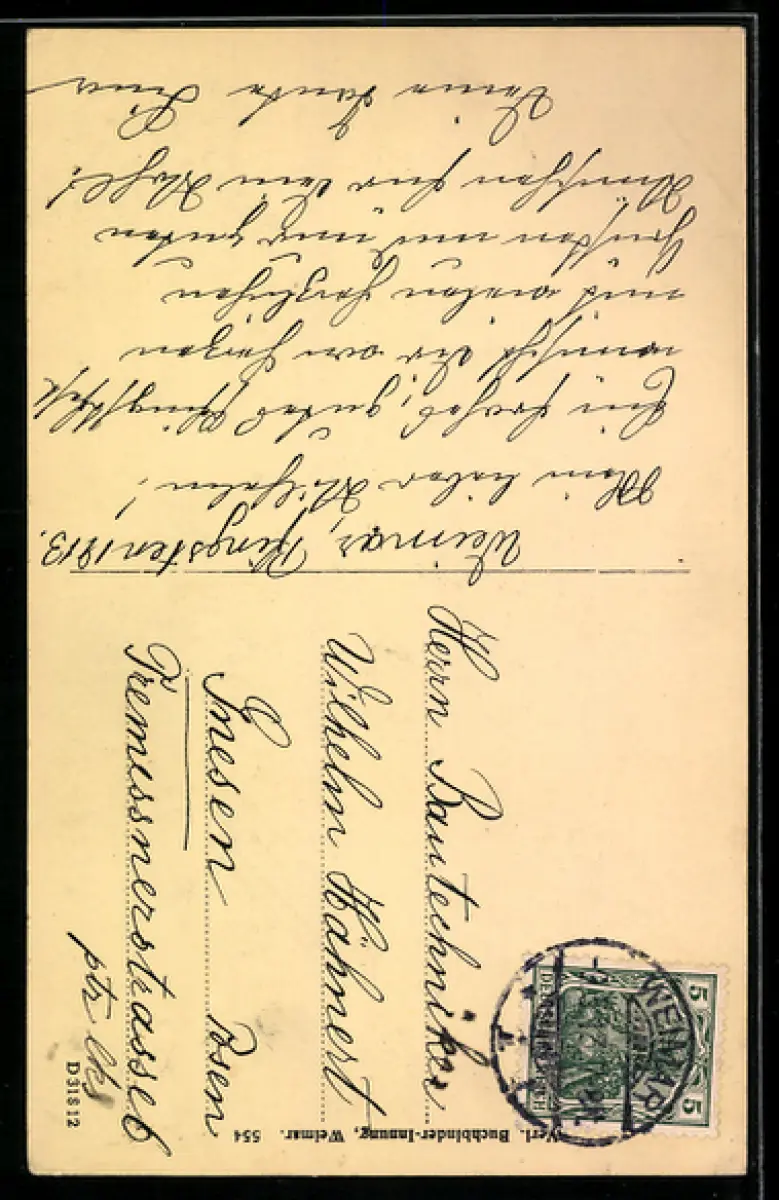 Weimar, Pfingsten 1913.
Mein lieber Wilhelm!
Ein frohes, gutes Pfingstfest
wünscht dir von Herzen
mit vielen herzlichen
Grüßen und nur guten
Wünschen für dein Wohl!
Deine Tante Lina
Herrn Bautechniker
Wilhelm Hähnert
Gnesen Posen
Tremessnerstrasse 6
ptr. lks
WEIMAR
5 5
DEUTSCHES REICH
Verl. Buchbinder-Innung, Weimar. 554
D 31812